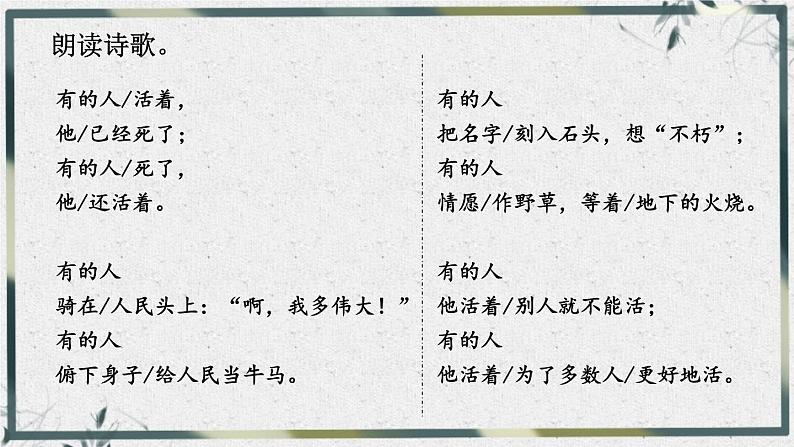 朗读诗歌。
有的人/活着，
他/已经死了；
有的人/死了，
他/还活着。
有的人
骑在/人民头上：“啊，我多伟大！”
有的人
俯下身子/给人民当牛马。
有的人
把名字/刻入石头，想“不朽”；
有的人
情愿/作野草，等着/地下的火烧。
有的人
他活着/别人就不能活；
有的人
他活着/为了多数人/更好地活。